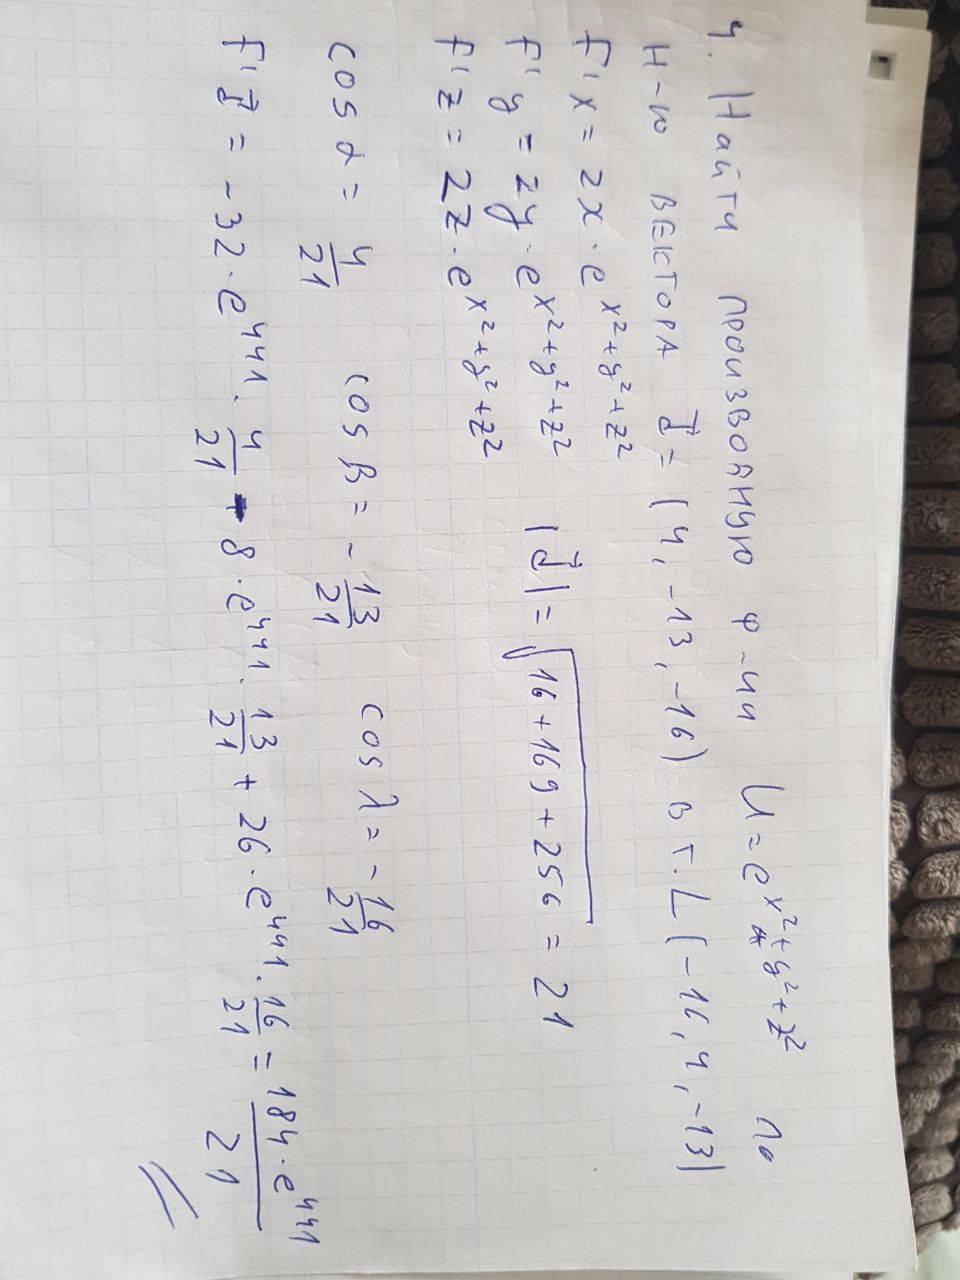 4. Найти производную ф-ии U = e^{x^2+y^2+z^2} по
н-ю вектора J⃗ = (4, -13, -16) в т. L (-16, 4, -13)
F'x = 2x · e^{x^2+y^2+z^2}
F'y = 2y · e^{x^2+y^2+z^2} |J⃗| = √(16 + 169 + 256) = 21
F'z = 2z · e^{x^2+y^2+z^2}
cos α = 4/21 cos β = - 13/21 cos λ = - 16/21
F'J⃗ = - 32 · e^{441} · 4/21 - 8 · e^{441} · 13/21 + 26 · e^{441} · 16/21 = 184 · e^{441}/21